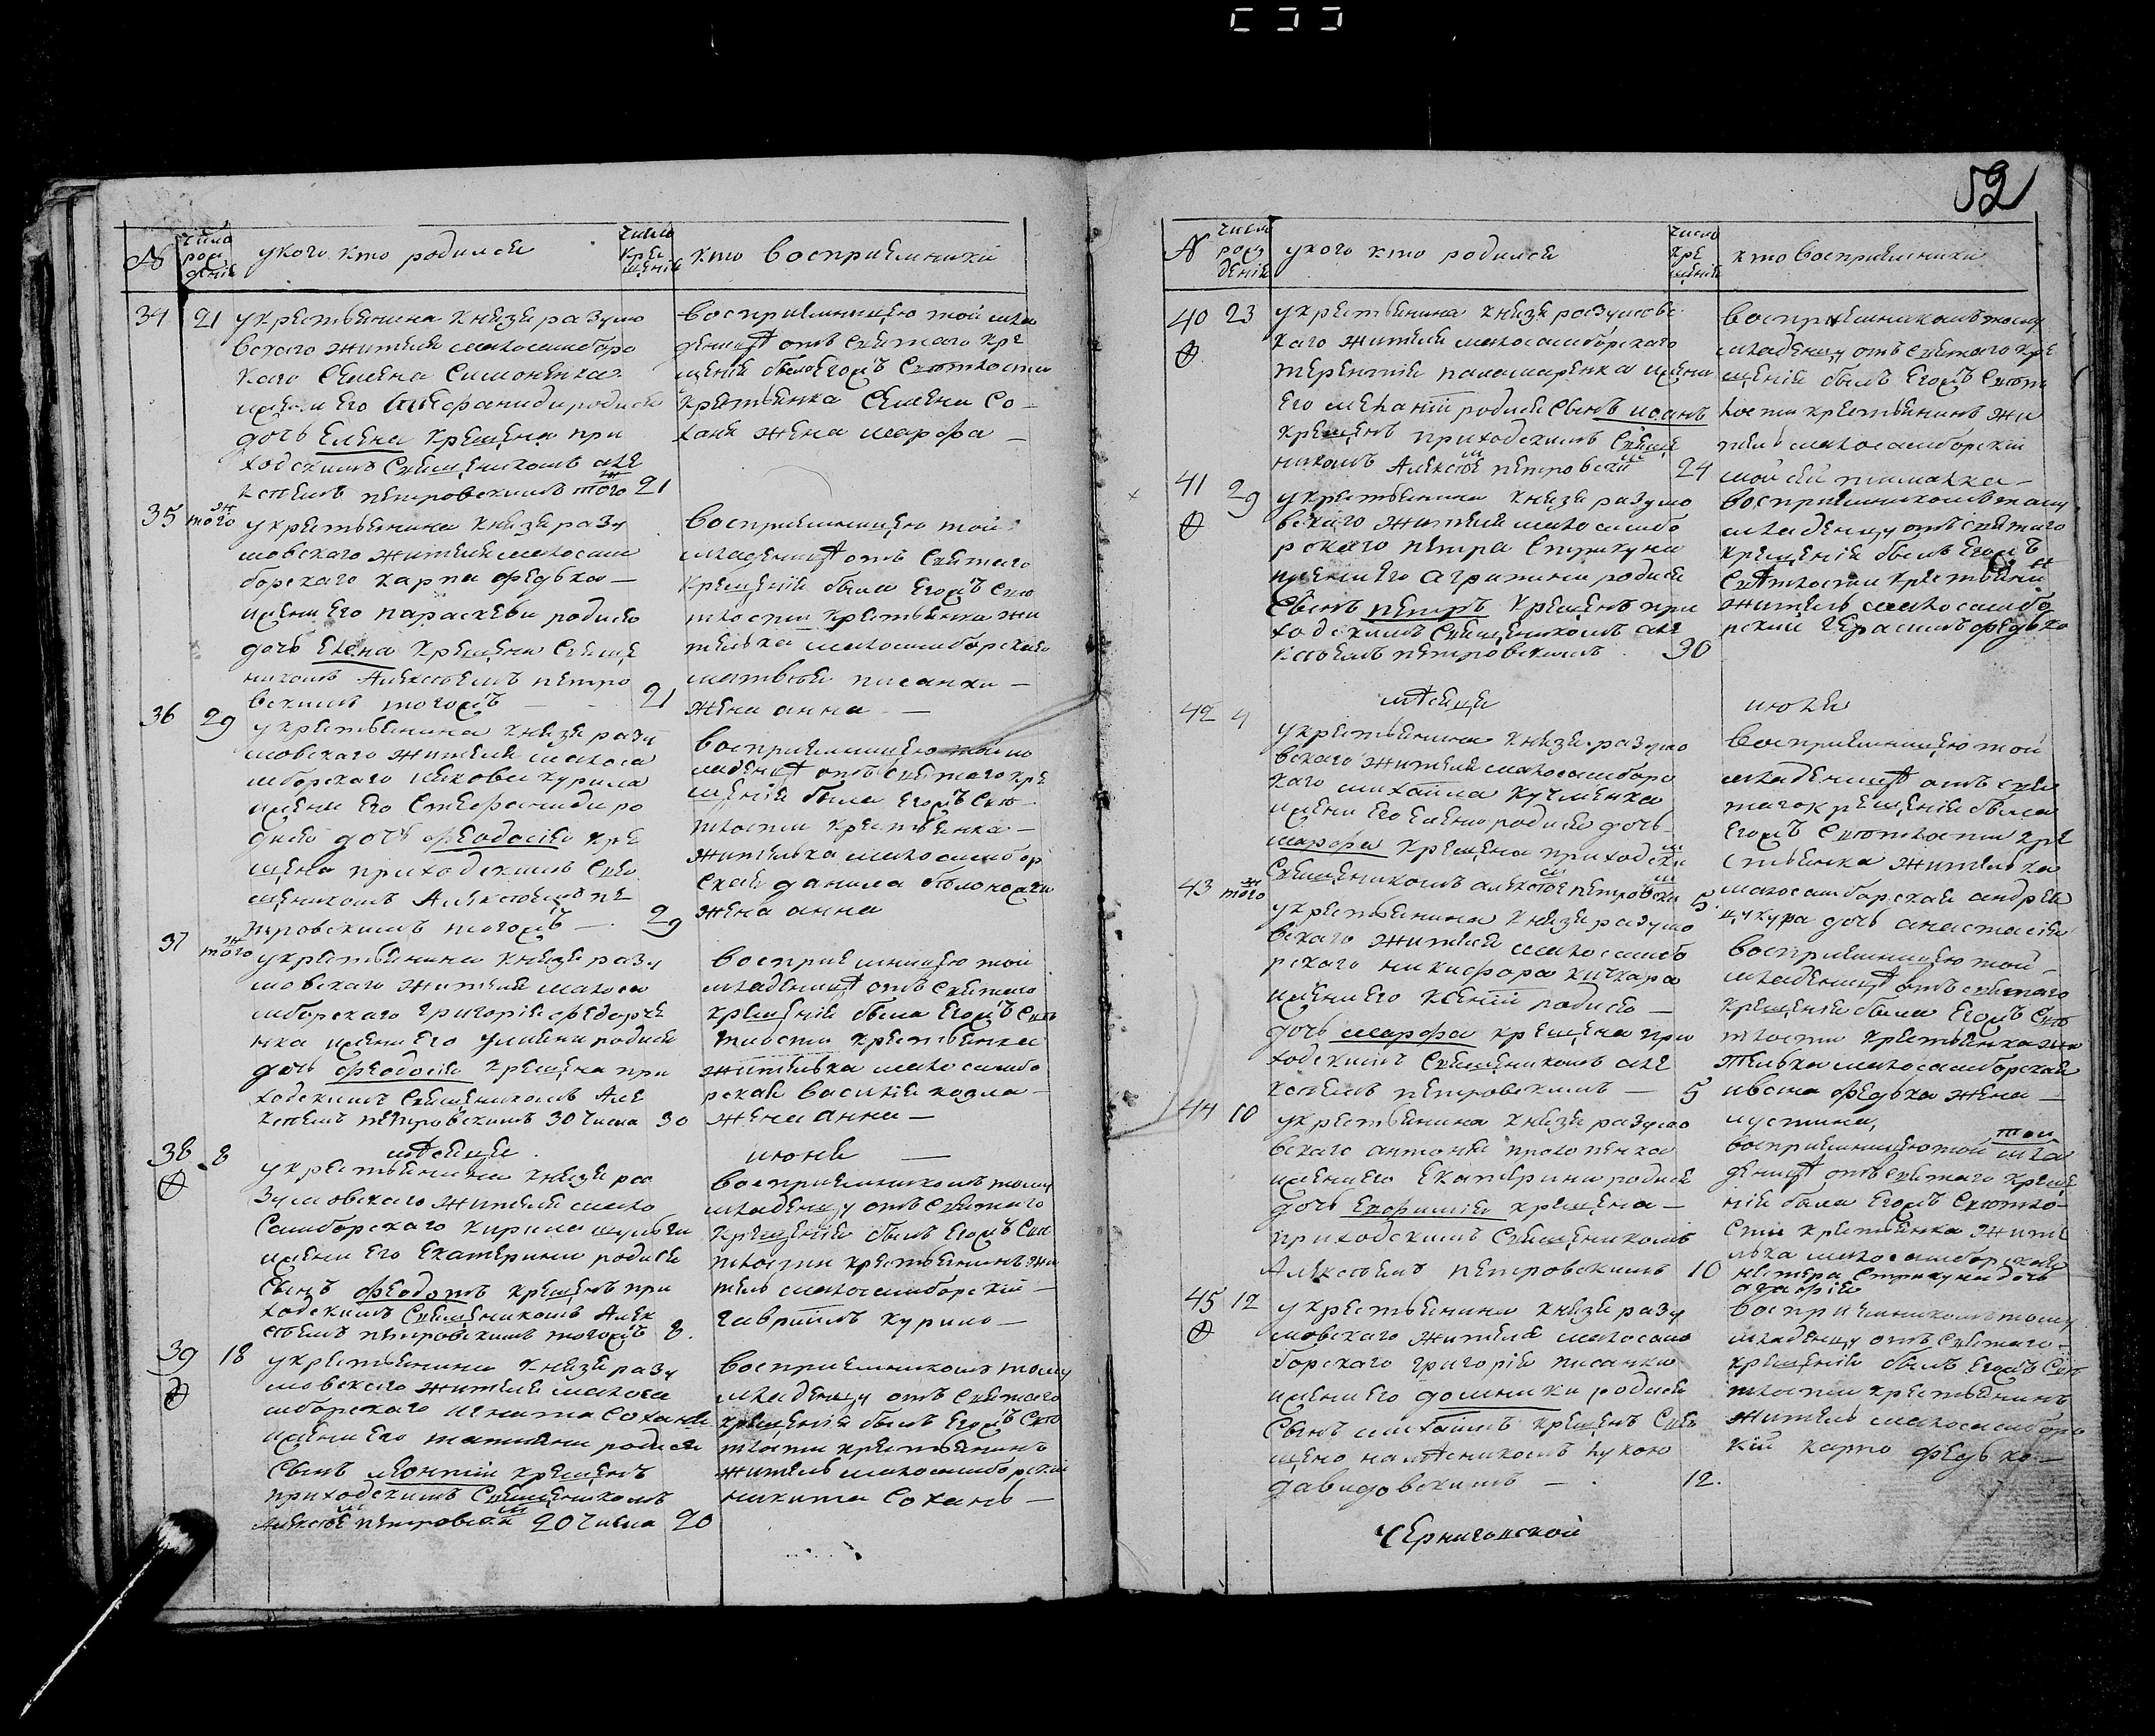 52
№
число рождения
у кого кто родился
число крещения
кто восприемники
34 21 у крестьянина князя разумо
вского жителя малосамборс
каго Семена Симоненка
жени его Стефаниди родися
дочь Елена крещена при
ходским Священником але
ксеем петровским того ж 21
восприемницею той мла
денице от святаго кре
щения была Егож Светлости
крестьянка Семена Со
ханя жена марфа —
35 того ж у крестьянина князя разу
мовского жителя малосам
борского карпа Федька —
жени его параскеви родися
дочь Елена крещена Свяще
ником Алексеем петро
вским тогож — 21
восприемницею той
младенице от святаго
крещения была Егож Све
тлости крестьянка жи
телька малосамборская
матвея писанки —
жена анна —
36 29 у крестьянина князя разу
мовского жителя малоса
мборского якова курила
жени его Стефаниди ро
дися дочь феодосия кре
щена приходским Свя
щеником Алексеем пе
тровским тогож — 29
восприемницею той м
ладенице от святаго кре
щения была Егож Све
тлости крестьянка —
жителька малосамбор
ская данила
жена анна
37 того ж у крестьянина князя разу
мовского жителя малоса
мборского григория федорче
нка жени его улияни родися
дочь феодосия крещена при
ходским Священиком Але
ксеем петровским 30 числа 30
восприемницею той
младенице от святаго
крещения была Егож Све
тлости крестьянка
жителька малосамбо
рская василия козла
жена анна —
месяца июня —
38 8 у крестьянина князя ра
зумовского жителя мало
самборского кирила
жени его Екатерини родися
Сын феодот крещен при
ходским Священиком Алек
сеем петровским тогож 8.
восприемником тому
младенцу от святаго
крещения был Егож Све
тлости крестьянин жи
тель малосамборский —
гавриил курило —
39 18 у крестьянина князя разу
мовского жителя малоса
мборского игната Соханя
жени его татияни родися
Сын леонтий крещен
приходским Священиком
Алексеем петровским 20 числа 20
восприемником тому
младенцу от святаго
крещения был Егож Све
тлости крестьянин
житель малосамборский
никита Сохань —
№
число рождения
у кого кто родился
число крещения
кто восприемники
40 23 у крестьянина князя разумовс
каго жителя малосамборскаго
терентия паламаренка жени
его мелании родися Сын иоан
крещен приходским Свяще
ником Алексеем петровским 24
восприемником тому
младенцу от святаго кре
щения был Егож Светл
ости крестьянин жи
тель малосамборский
моисей
41 29 у крестьянина князя разумо
вского жителя малосамбо
рского петра Стрикуна
жени его агрипини родися
Сын петр крещен при
ходским Священиком але
ксеем петровским 30
восприемником тому
младенцу от святаго
крещения был Егож
Светлости крестьянин
житель малосамбо
рский герасим федько
месяца июля
42 4 у крестьянина князя разумо
вского жителя малосамборс
каго михаила кучменка
жени его елени родися дочь
марфа крещена приходским
Священиком алексеем петровским 5.
восприемницею той
младенице от свя
таго крещения была
Егож Светлости кре
стьянка жителька
малосамборская андрея
цукура дочь анастасия
43 того ж у крестьянина князя разумо
вского жителя малосамбо
рского никифора кичкара
жени его ксении родися —
дочь марфа крещена при
ходским Священиком але
ксеем петровским — 5
восприемницею той
младенице от святаго
крещения была Егож Све
тлости крестьянка жи
телька малосамборская
ивана федька жена —
иустина,
44 10 у крестьянина князя разумо
вского антония прокопенка
жени его Екатерини родися
дочь Евфимия крещена —
приходским Священиком
Алексеем петровским 10
восприемницею той мла
денице от святаго креще
ния была Егож Светло
сти крестьянка жите
лька малосамборская
петра Стрикуна дочь
агафия
45 12 у крестьянина князя разу
мовского жителя малосам
борского григория писанки
жени его домники родися
Сын михаил крещен Свя
щено наместником лукою
давидовским — 12.
восприемником тому
младенцу от святаго
крещения был Егож Све
тлости крестьянин
житель малосамборс
кий карпо федько —
Черниговской